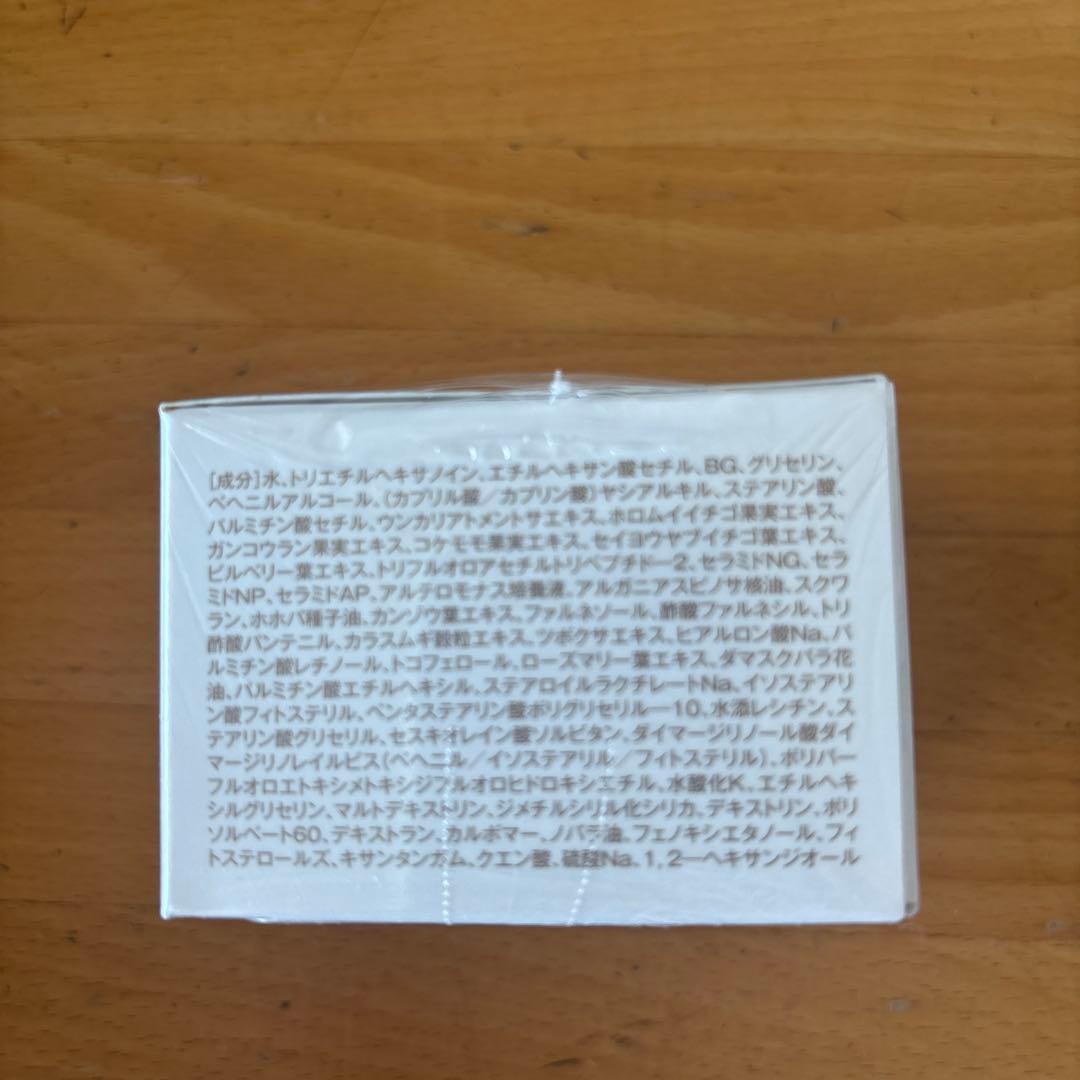 [成分]水、トリエチルヘキサノイン、エチルヘキサン酸セチル、BG、グリセリン、
ベヘニルアルコール、(カプリル酸/カプリン酸)ヤシアルキル、ステアリン酸、
パルミチン酸セチル、ウンカリアトメントサエキス、ホロムイイチゴ果実エキス、
ガンコウラン果実エキス、コケモモ果実エキス、セイヨウヤブイチゴ葉エキス、
ビルベリー葉エキス、トリフルオロアセチルトリペプチド-2、セラミドNG、セラ
ミドNP、セラミドAP、アルテロモナス培養液、アルガニアスピノサ核油、スクワ
ラン、ホホバ種子油、カンゾウ葉エキス、ファルネソール、酢酸ファルネシル、トリ
酢酸パンテニル、カラスムギ穀粒エキス、ツボクサエキス、ヒアルロン酸Na、パ
ルミチン酸レチノール、トコフェロール、ローズマリー葉エキス、ダマスクバラ花
油、パルミチン酸エチルヘキシル、ステアロイルラクチレートNa、イソステアリ
ン酸フィトステリル、ペンタステアリン酸ポリグリセリル-10、水添レシチン、ス
テアリン酸グリセリル、セスキオレイン酸ソルビタン、ダイマージリノール酸ダイ
マージリノレイルビス(ベヘニル/イソステアリル/フィトステリル)、ポリパー
フルオロエトキシメトキシジフルオロヒドロキシエチル、水酸化K、エチルヘキ
シルグリセリン、マルトデキストリン、ジメチルシリル化シリカ、デキストリン、ポリ
ソルベート60、デキストラン、カルボマー、ノバラ油、フェノキシエタノール、フィ
トステロールズ、キサンタンガム、クエン酸、硫酸Na、1,2-ヘキサンジオール